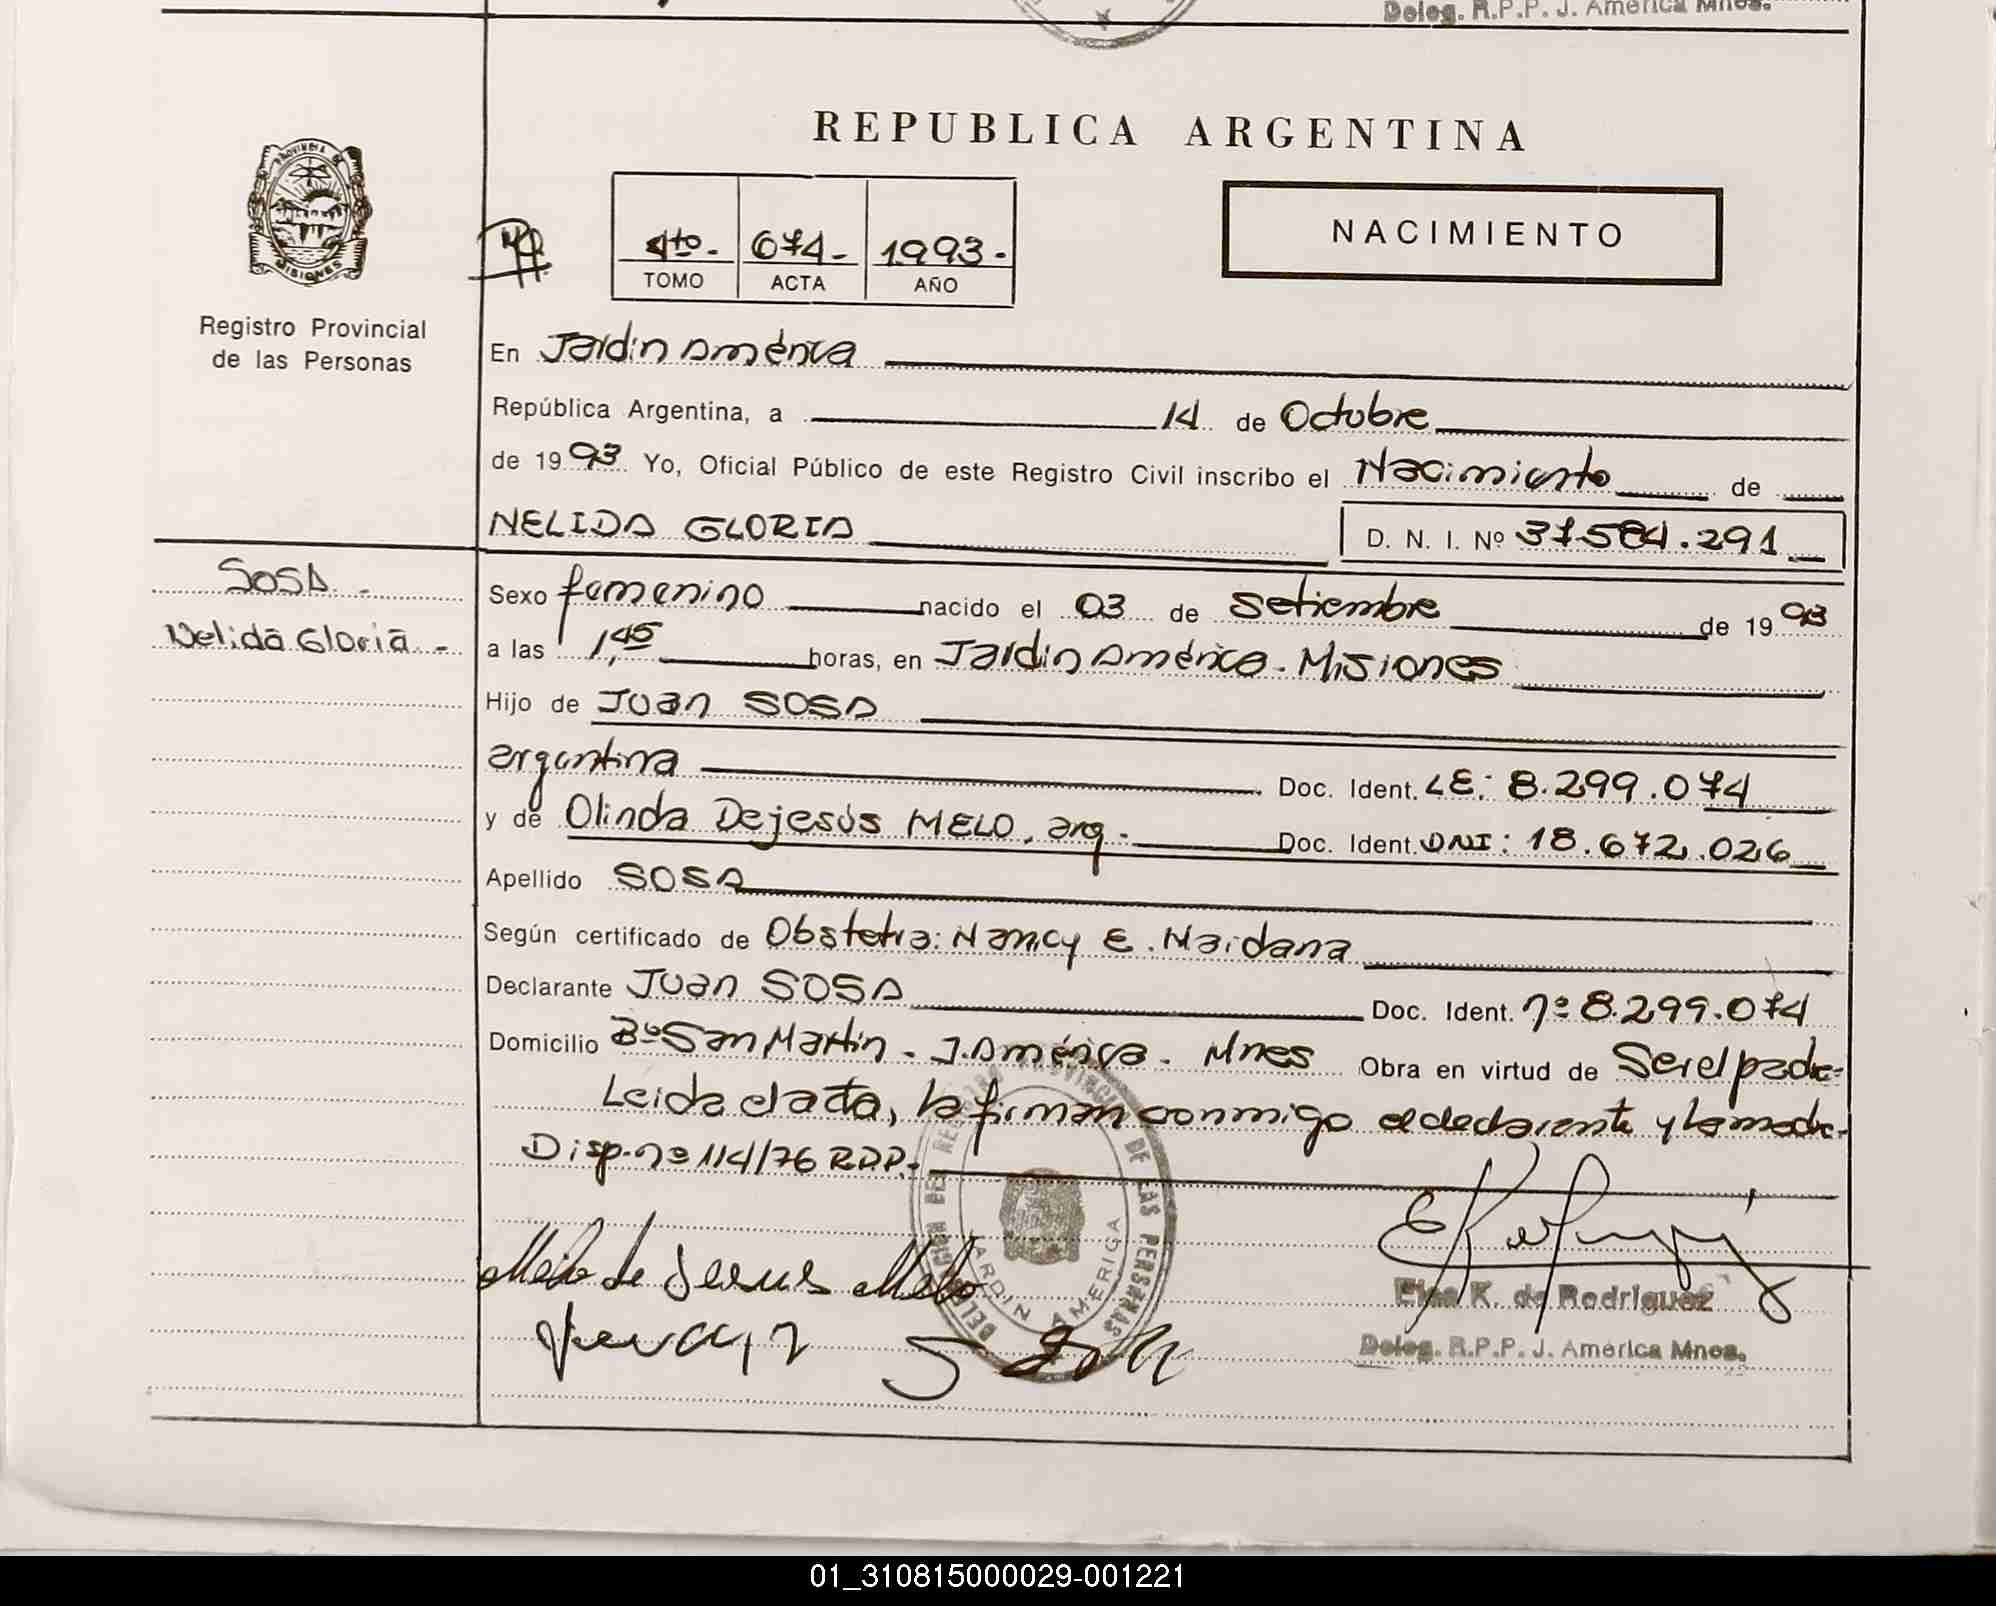 Deleg. R.P.P. J. América Mnes.
REPUBLICA ARGENTINA
PROVINCIA DE
MISIONES
Registro Provincial
de las Personas
4to.- 674- 1993.-
TOMO ACTA AÑO
NACIMIENTO
En Jardín América
República Argentina, a 14 de Octubre
de 1993 Yo, Oficial Público de este Registro Civil inscribo el Nacimiento de
NELIDA GLORIA D. N. I. Nº 37.584.291
SOSA.-
Nelida Gloria.-
Sexo femenino nacido el 03 de Setiembre de 1993
a las 1,45 horas, en Jardín América - Misiones
Hijo de Juan SOSA
argentina Doc. Ident. LE: 8.299.074
y de Olinda Dejesús MELO, arg.- Doc. Ident. DNI: 18.672.026
Apellido SOSA
Según certificado de Obstetra: Nancy E. Maidana
Declarante Juan SOSA Doc. Ident. nº 8.299.074
Domicilio Bº San Martín - J. América - Mnes Obra en virtud de Ser el padre-
Leida el acta, la firman conmigo el declarante y la madre-
Disp. nº 114/76 R.P.P.-
DELEGACION DEL REGISTRO PROVINCIAL DE LAS PERSONAS
JARDIN AMERICA
Melo de Jesus Melo
Elsa K. de Rodríguez
Deleg. R.P.P. J. América Mnes.
01_310815000029-001221